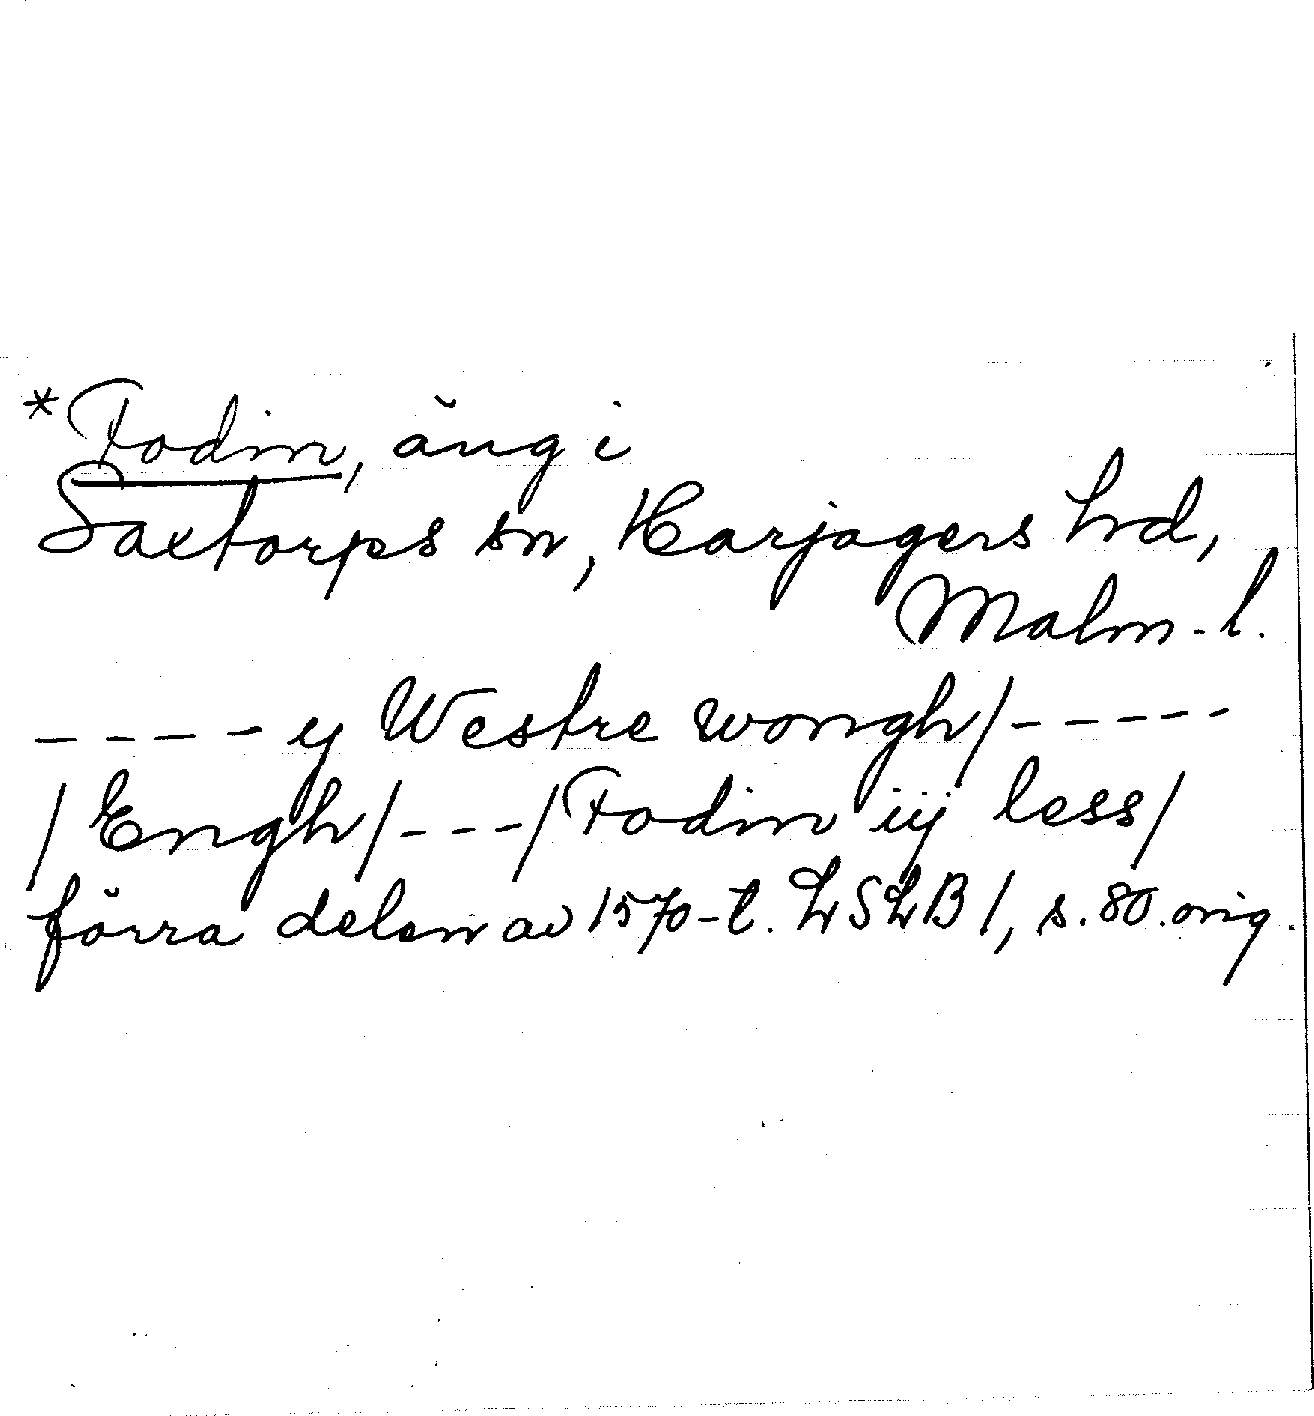 *Fodin, äng i
Saxtorps sn, Harjagers hd,
Malm-l.
---- ij Westre wongh/-----
/Engh/---/Fodin iij less/
förra delen av 1570-t. LSLB 1, s. 80. orig.